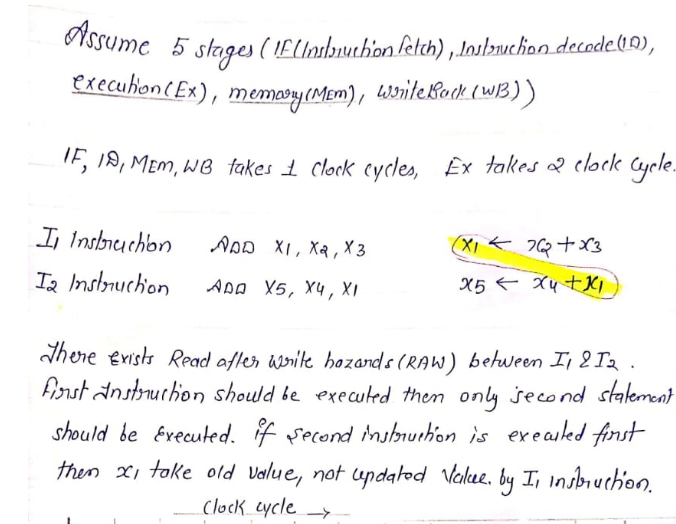 Assume 5 stages (IF(Instruction fetch), Instruction decode(ID),
execution(Ex), memory(MEM), WriteBack (WB))
IF, ID, MEM, WB takes 1 clock cycles, Ex takes 2 clock cycle.
I1 Instruction ADD X1, X2, X3 X1 ← X2 + X3
I2 Instruction ADD X5, X4, X1 X5 ← X4 + X1
There exists Read after write hazards (RAW) between I1 & I2.
First Instruction should be executed then only second statement
should be executed. if second instruction is executed first
then x1 take old value, not updated value. by I1 instruction.
Clock cycle →